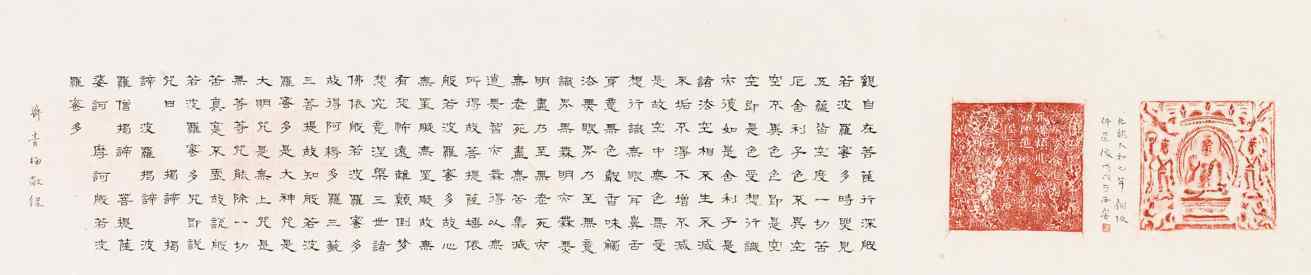 觀自在菩薩行深般
若波羅蜜多時照見
五蘊皆空度一切苦
厄舍利子色不異空
空不異色色即是空
空即是色受想行識
亦復如是舍利子是
諸法空相不生不滅
不垢不淨不增不減
是故空中無色無受
想行識無眼耳鼻舌
身意無色聲香味觸
法無眼界乃至無意
識界無無明亦無無
明盡乃至無老死亦
無老死盡無苦集滅
道無智亦無得以無
所得故菩提薩埵依
般若波羅蜜多故心
無罣礙無罣礙故無
有恐怖遠離顛倒夢
想究竟涅槃三世諸
佛依般若波羅蜜多
故得阿耨多羅三藐
三菩提故知般若波
羅蜜多是大神咒是
大明咒是無上咒是
無等等咒能除一切
苦真實不虛故說般
若波羅蜜多咒即說
咒曰 揭諦 揭
諦 波羅揭諦 波
羅僧揭諦 菩提薩
婆訶 摩訶般若波
羅蜜多